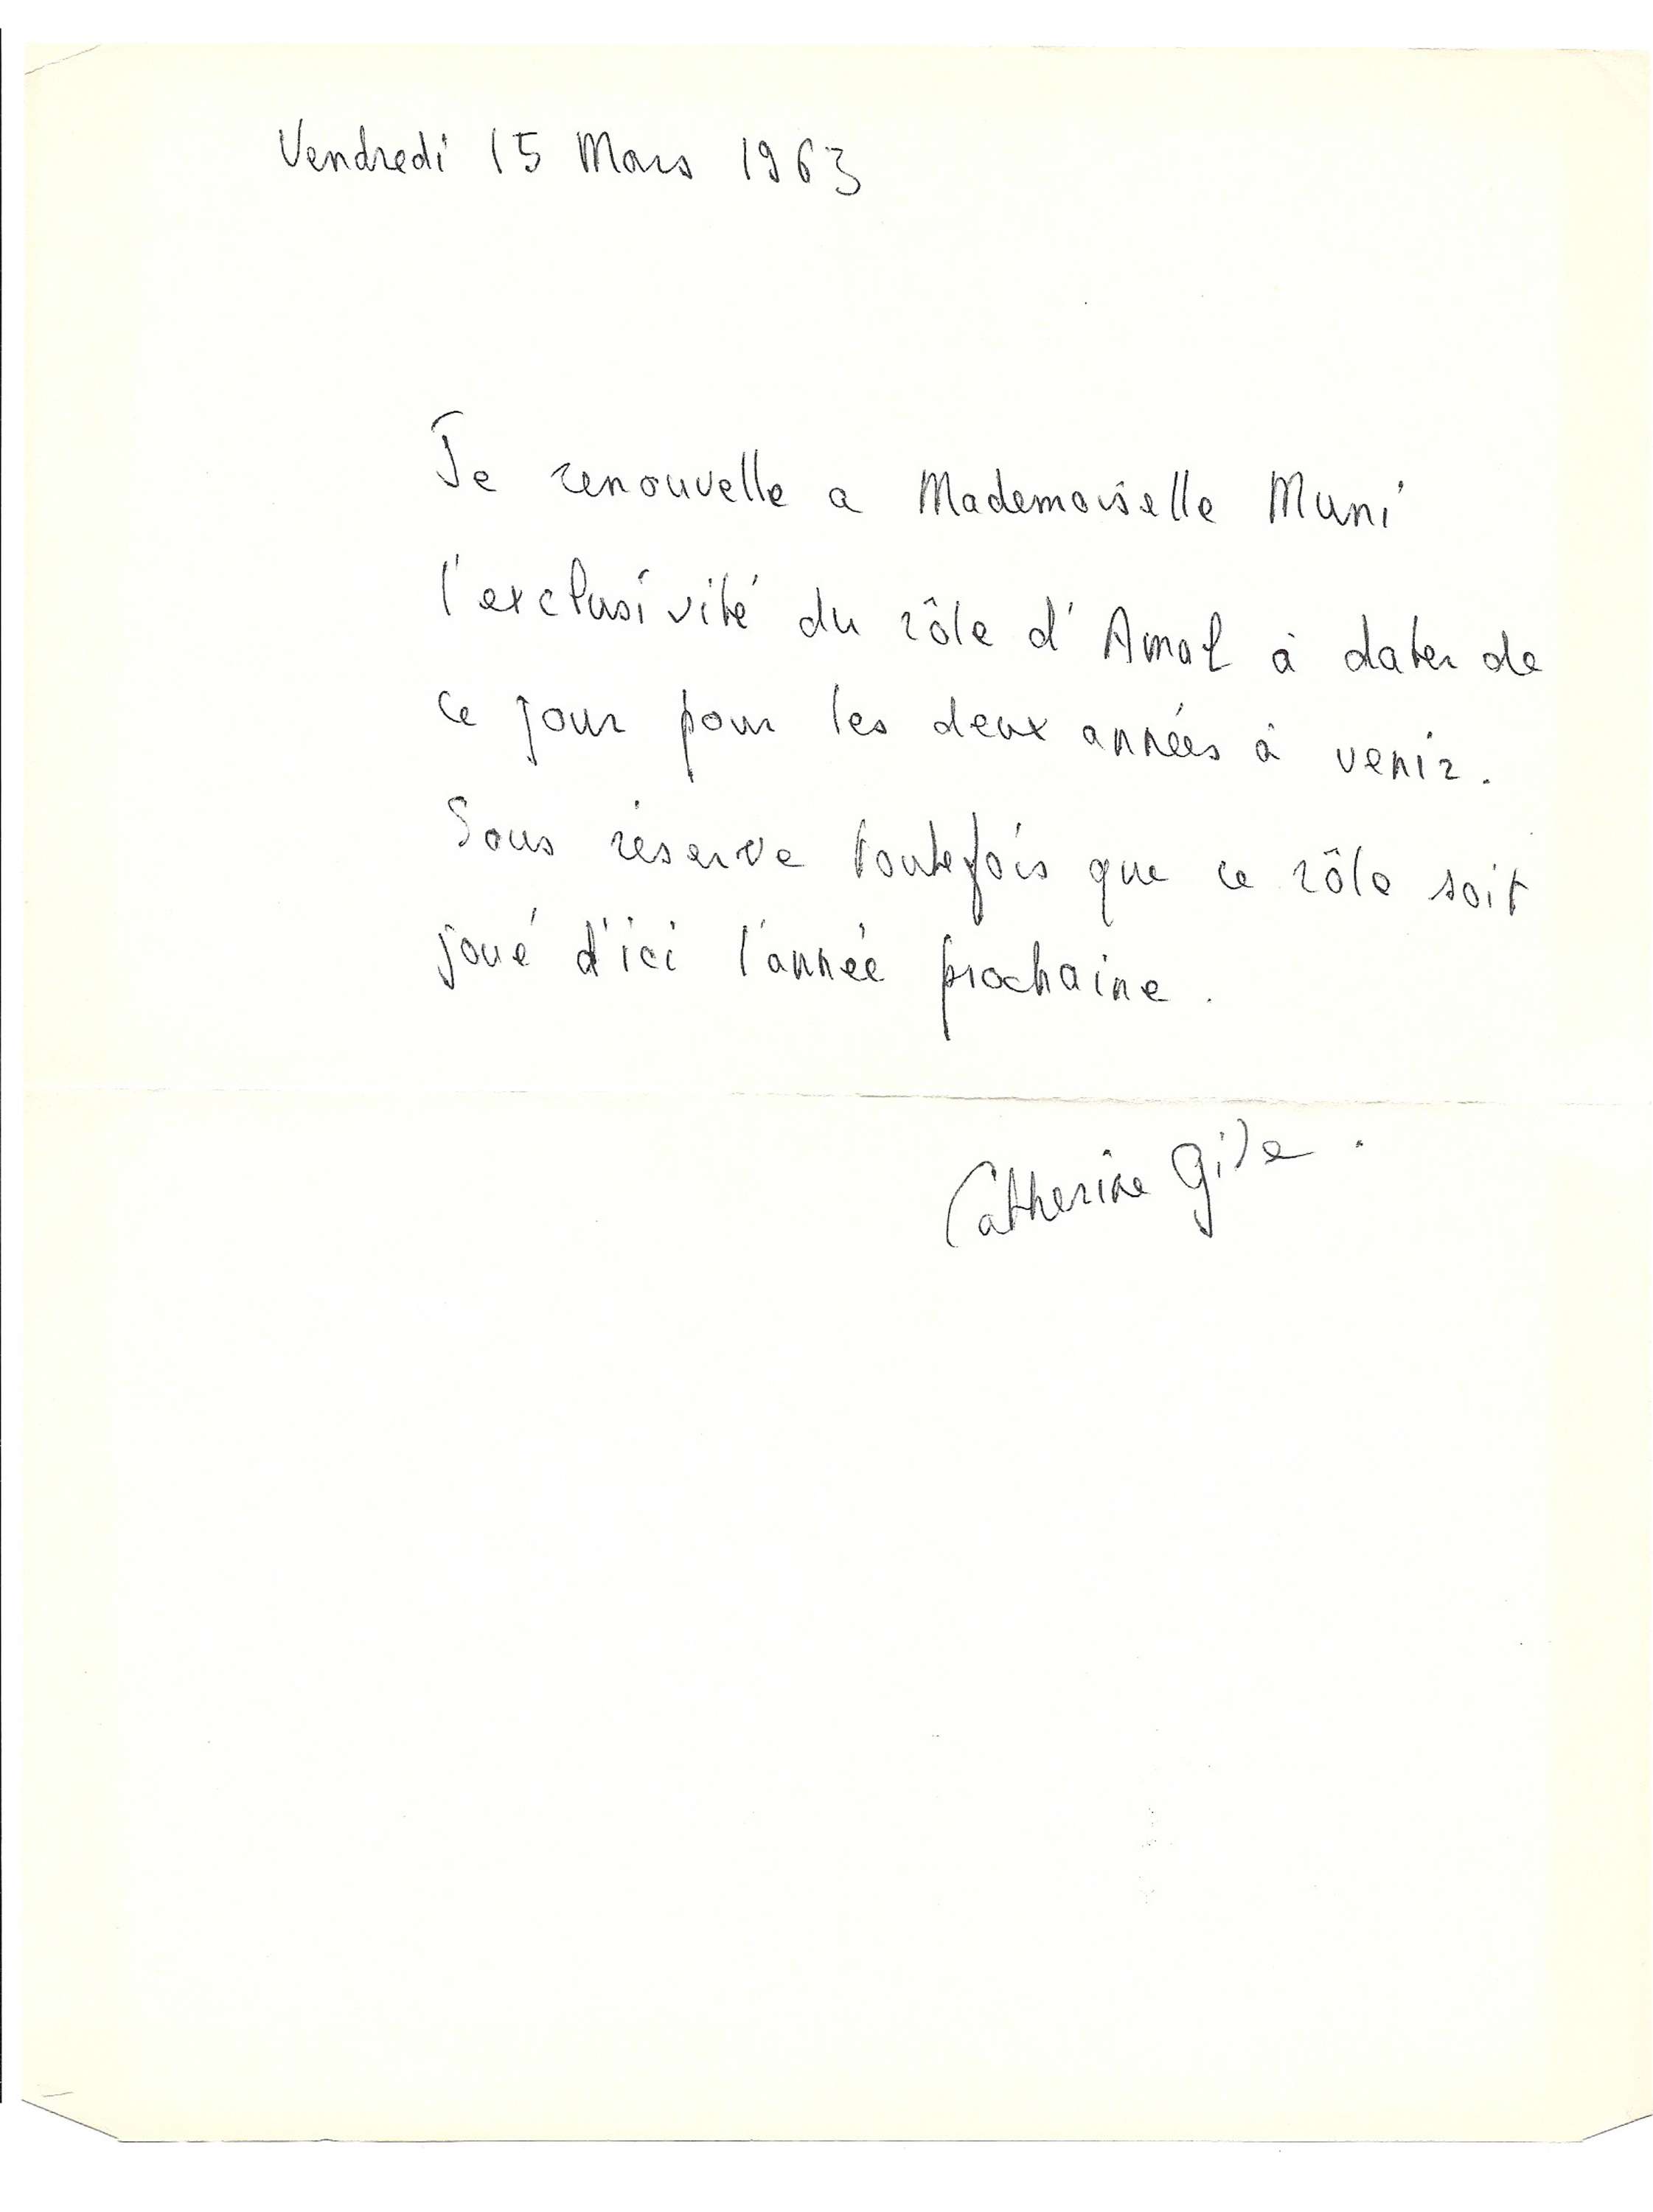 Vendredi 15 Mars 1963
Je renouvelle a Mademoiselle Muni
l'exclusivité du rôle d'Amal à dater de
ce jour pour les deux années à venir.
Sous réserve toutefois que ce rôle soit
joué d'ici l'année prochaine.
Catherine Gide.